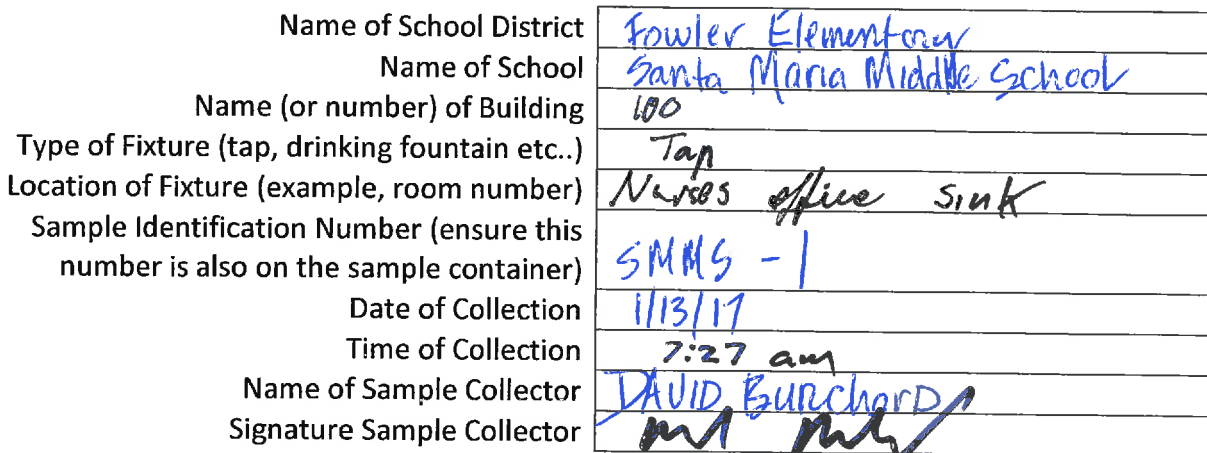 Name of School District Fowler Elementary
Name of School Santa Maria Middle School
Name (or number) of Building 100
Type of Fixture (tap, drinking fountain etc..) Tap
Location of Fixture (example, room number) Nurses office sink
Sample Identification Number (ensure this
number is also on the sample container) SMMS - 1
Date of Collection 1/13/17
Time of Collection 7:27 am
Name of Sample Collector DAVID BURCharD
Signature Sample Collector